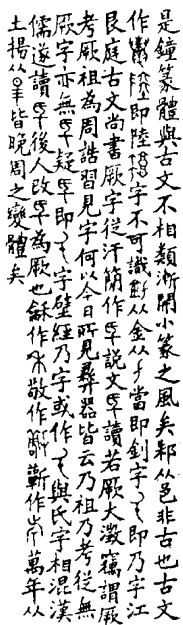 是鐘篆體與古文不相類漸開小篆之風矣邾从邑非古也古文
作即陸字不可識从金从當即釗字即乃字江
艮庭古文尚書厥字從汗簡作氒說文氒讀若厥大澂竊謂厥
考厥祖為周誥習見字何以今日所見彝器皆云乃祖乃考從無
厥字亦無氒疑氒即字壁經乃字或作與氏字相混漢
儒遂讀氒後人改氒為厥也龢作敬作蘄作萬年从
土揚从皆晚周之變體矣